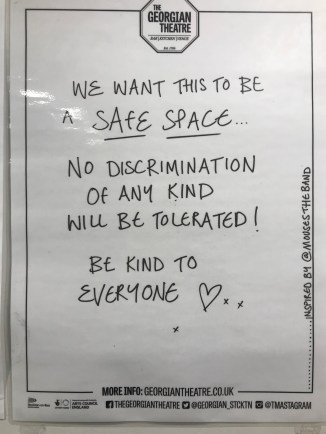 THE
GEORGIAN
THEATRE
WE WANT THIS TO BE
A SAFE SPACE...
NO DISCRIMINATION
OF ANY KIND
WILL BE TOLERATED!
BE KIND TO
EVERYONE ♡ x x
x
INSPIRED BY @MOUSESTHEBAND
MORE INFO: GEORGIANTHEATRE.CO.UK
ARTS COUNCIL
ENGLAND
THEGEORGIANTHEATRE @GEORGIAN_STCKTN @TMASTAGRAM